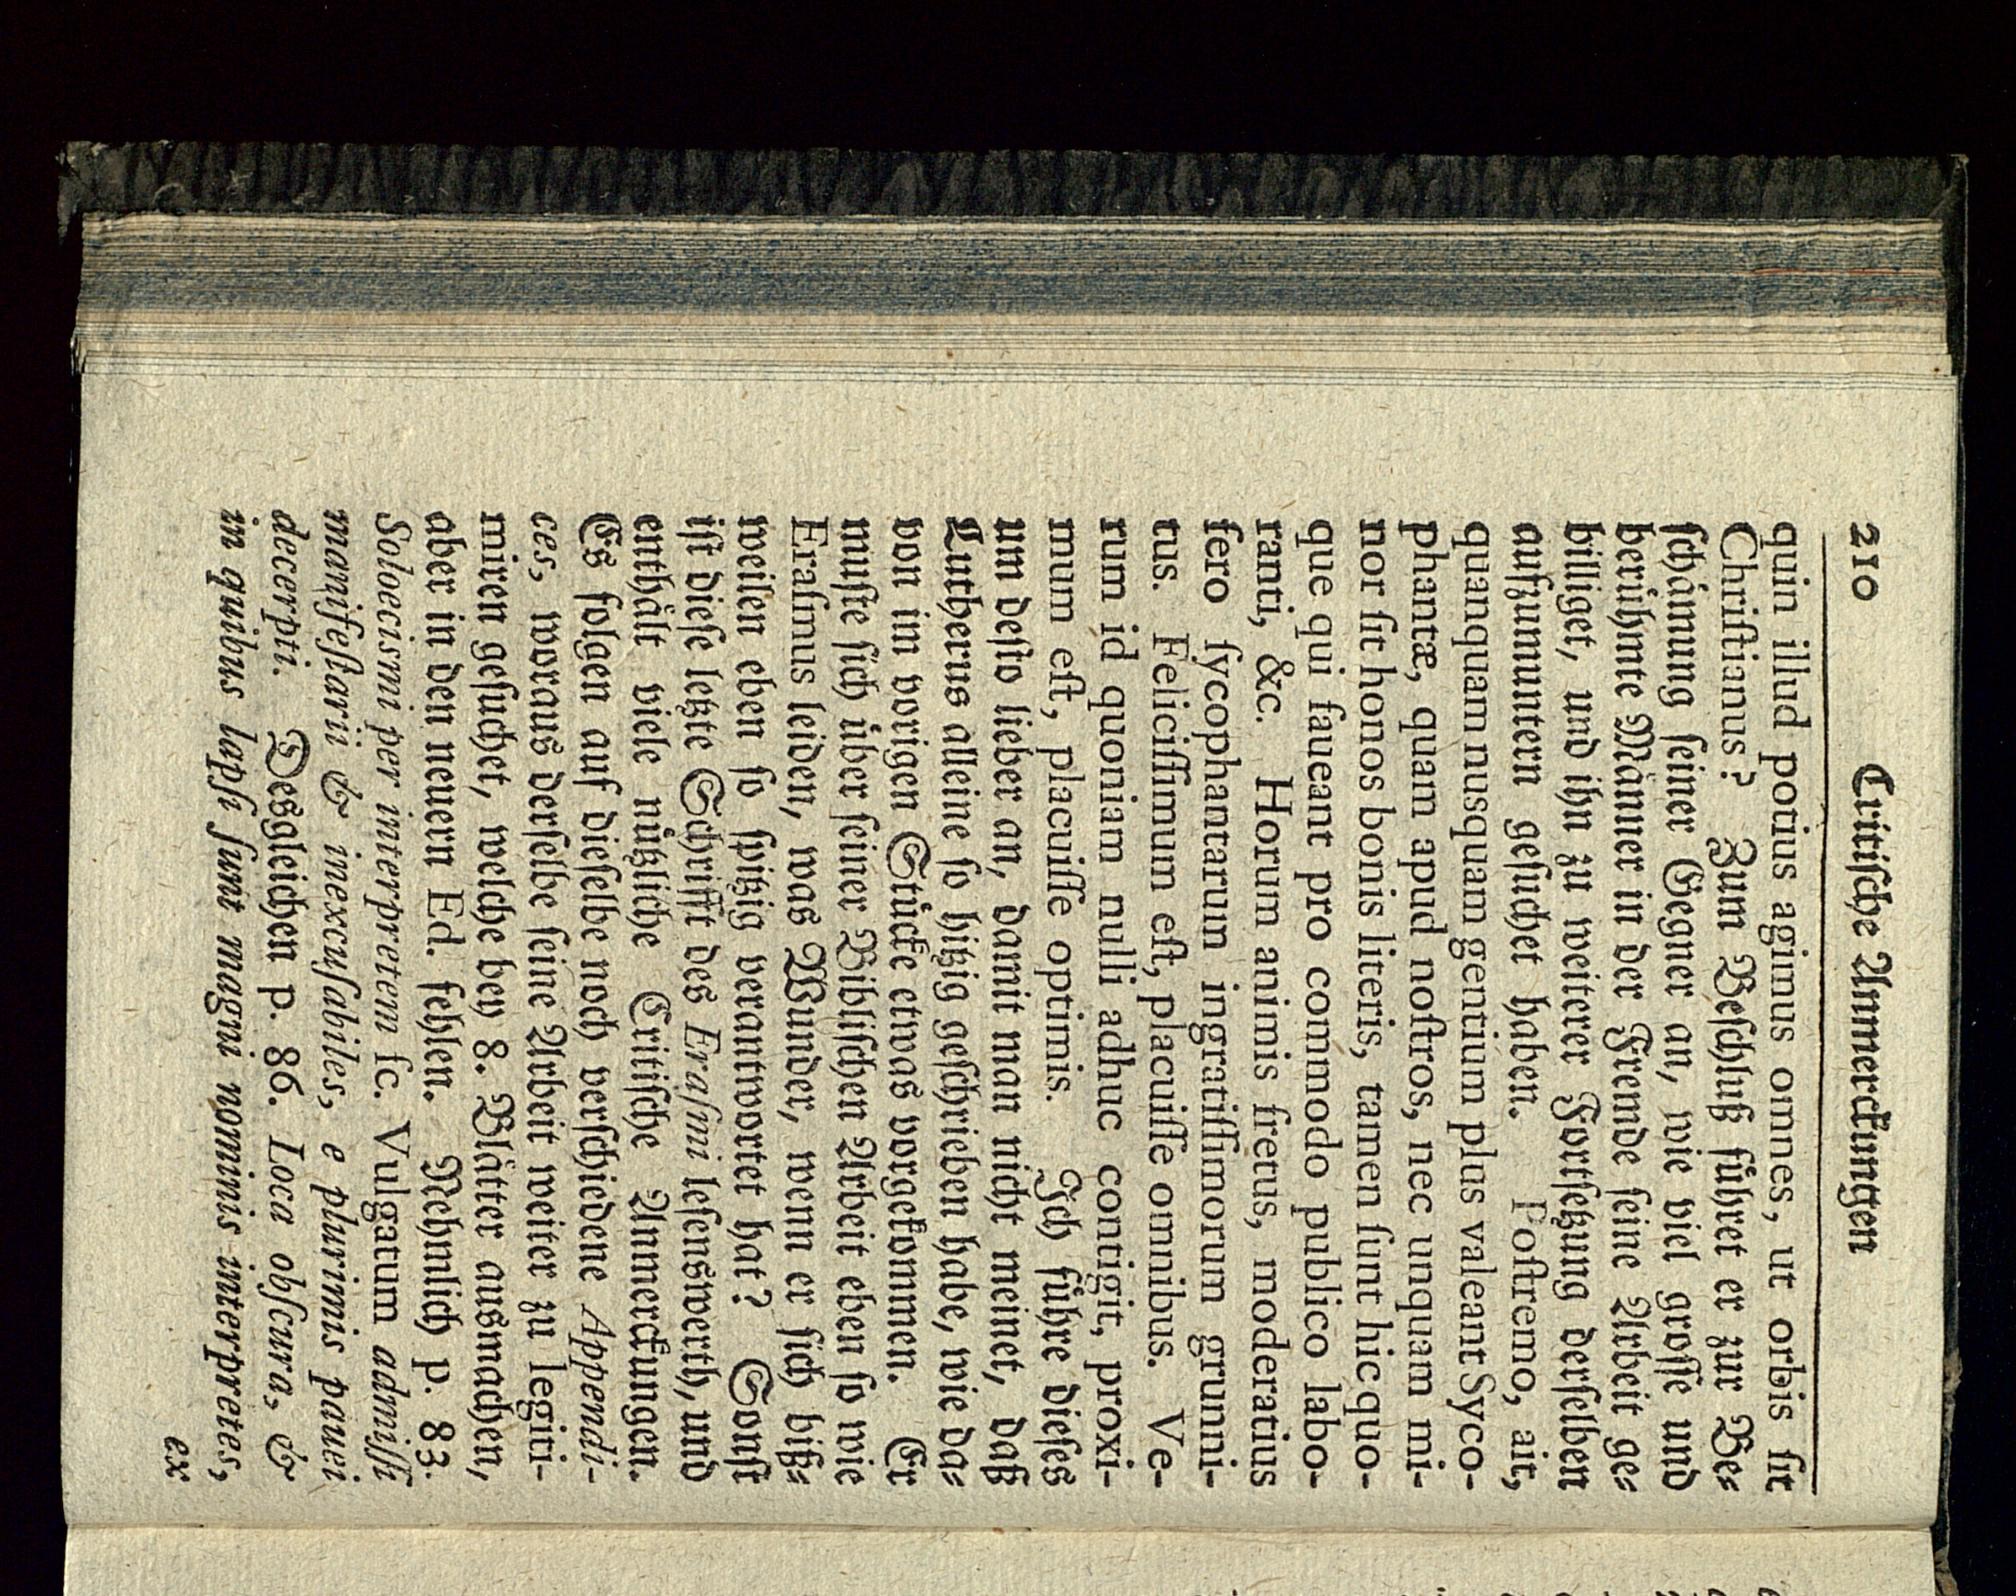 210 Critiſche Anmerckungen
quin illud potius agimus omnes, ut orbis ſit
Chriſtianus? Zum Beſchluß führet er zur Be⸗
ſchämung ſeiner Gegner an, wie viel groſſe und
berühmte Männer in der Fremde ſeine Arbeit ge⸗
billiget, und ihn zu weiterer Fortſetzung derſelben
aufzumuntern geſuchet haben. Poſtremo, ait,
quanquam nusquam gentium plus valeant Syco-
phantæ, quam apud noſtros, nec unquam mi-
nor ſit honos bonis literis, tamen ſunt hic quo-
que qui faueant pro commodo publico labo-
ranti, &c. Horum animis fretus, moderatius
fero ſycophantarum ingratiſſimorum grunni-
tus. Feliciſſimum eſt, placuiſſe omnibus. Ve-
rum id quoniam nulli adhuc contigit, proxi-
mum eſt, placuiſſe optimis. Ich führe dieſes
um deſto lieber an, damit man nicht meinet, daß
Lutherus alleine ſo hitzig geſchrieben habe, wie da⸗
von im vorigen Stücke etwas vorgekommen. Er
muſte ſich über ſeiner Bibliſchen Arbeit eben ſo wie
Eraſmus leiden, was Wunder, wenn er ſich biß⸗
weilen eben ſo ſpitzig verantwortet hat? Sonſt
iſt dieſe letzte Schrifft des Eraſmi leſenswerth, und
enthält viele nützliche Critiſche Anmerckungen.
Es folgen auf dieſelbe noch verſchiedene Appendi-
ces, woraus derſelbe ſeine Arbeit weiter zu legiti-
miren geſuchet, welche bey 8. Blätter ausmachen,
aber in den neuern Ed. fehlen. Nehmlich p. 83.
Soloeciſmi per interpretem ſc. Vulgatum admiſſi
manifeſtarii & inexcuſabiles, e plurimis pauci
decerpti. Desgleichen p. 86. Loca obſcura, &
in quibus lapſi ſunt magni nominis interpretes,
ex